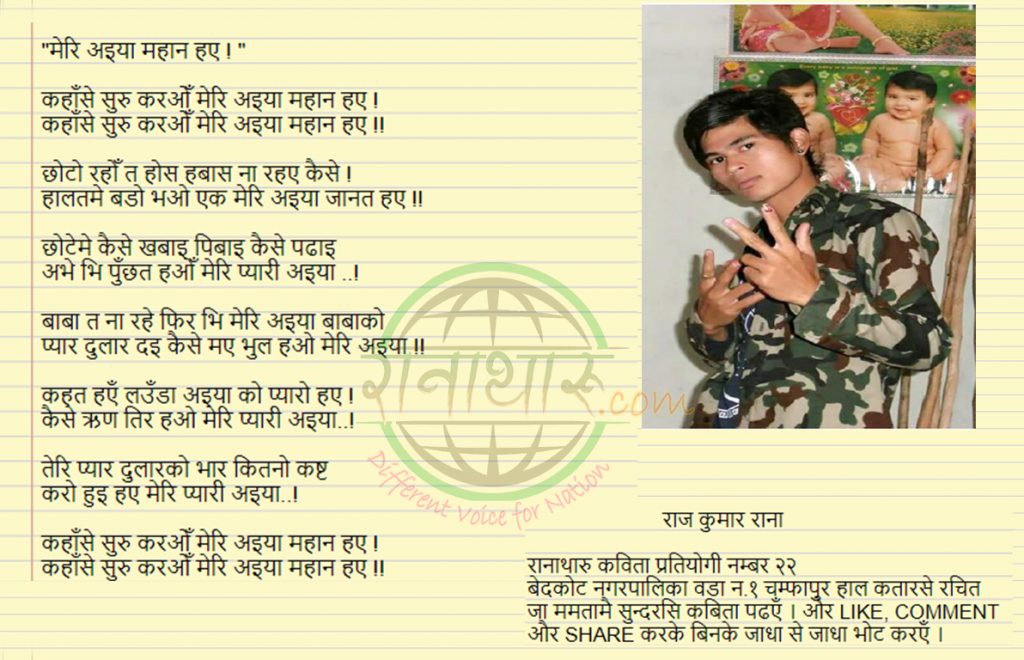 "मेरि अइया महान हए ! "
कहाँसे सुरु करओँ मेरि अइया महान हए !
कहाँसे सुरु करओँ मेरि अइया महान हए !!
छोटो रहोँ त होस हबास ना रहए कैसे !
हालतमे बडो भओ एक मेरि अइया जानत हए !!
छोटेमे कैसे खबाइ पिबाइ कैसे पढाइ
अभे भि पुँछत हओँ मेरि प्यारी अइया ..!
बाबा त ना रहे फिर भि मेरि अइया बाबाको
प्यार दुलार दइ कैसे मए भुल हओ मेरि अइया !!
कहत हएँ लउँडा अइया को प्यारो हए !
कैसे ऋण तिर हओ मेरि प्यारी अइया..!
तेरि प्यार दुलारको भार कितनो कष्ट
करो हुइ हए मेरि प्यारी अइया..!
कहाँसे सुरु करओँ मेरि अइया महान हए !
कहाँसे सुरु करओँ मेरि अइया महान हए !!
रानाथारू.com
Different Voice for Nation
राज कुमार राना
रानाथारु कविता प्रतियोगी नम्बर २२
बेदकोट नगरपालिका वडा न.१ चम्फापुर हाल कतारसे रचित
जा ममतामै सुन्दरसि कबिता पढएँ । और LIKE, COMMENT
और SHARE करके बिनके जाधा से जाधा भोट करएँ ।